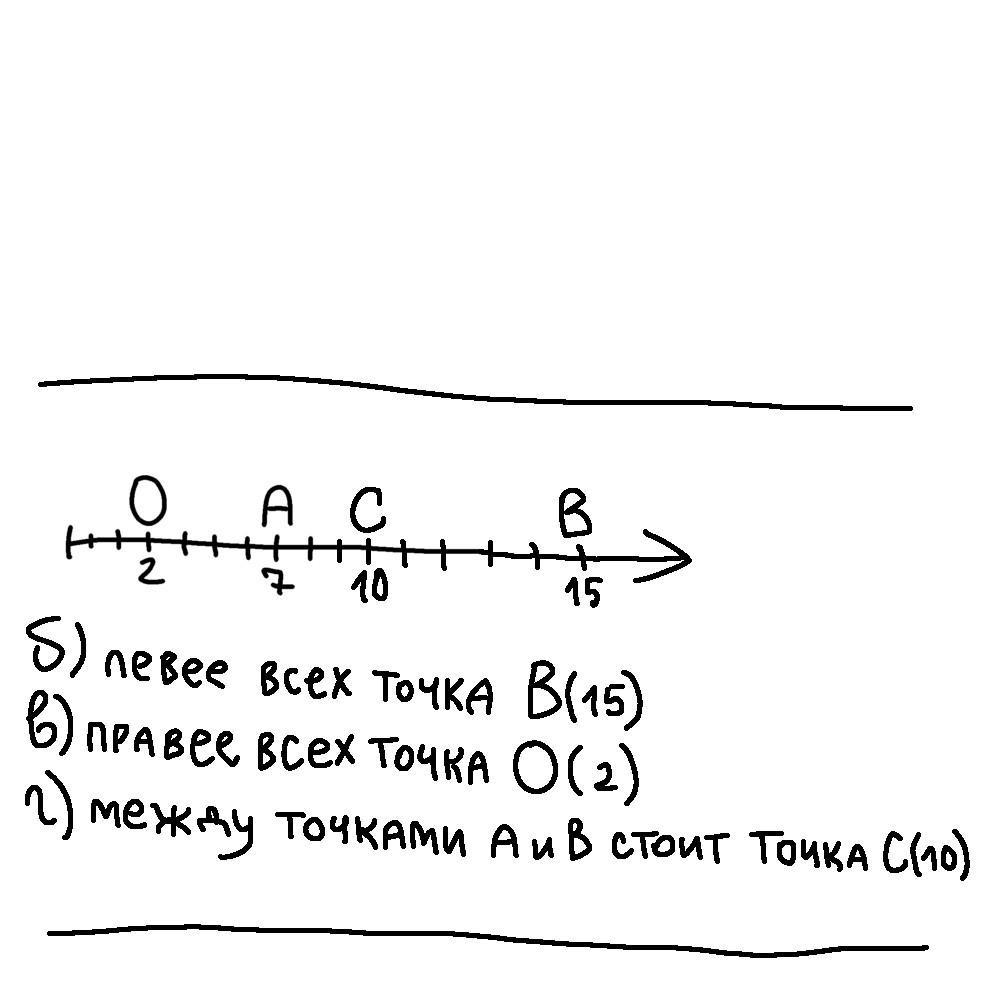 О А С В
2 7 10 15
б) левее всех точка В(15)
в) правее всех точка О(2)
г) между точками А и В стоит точка С(10)